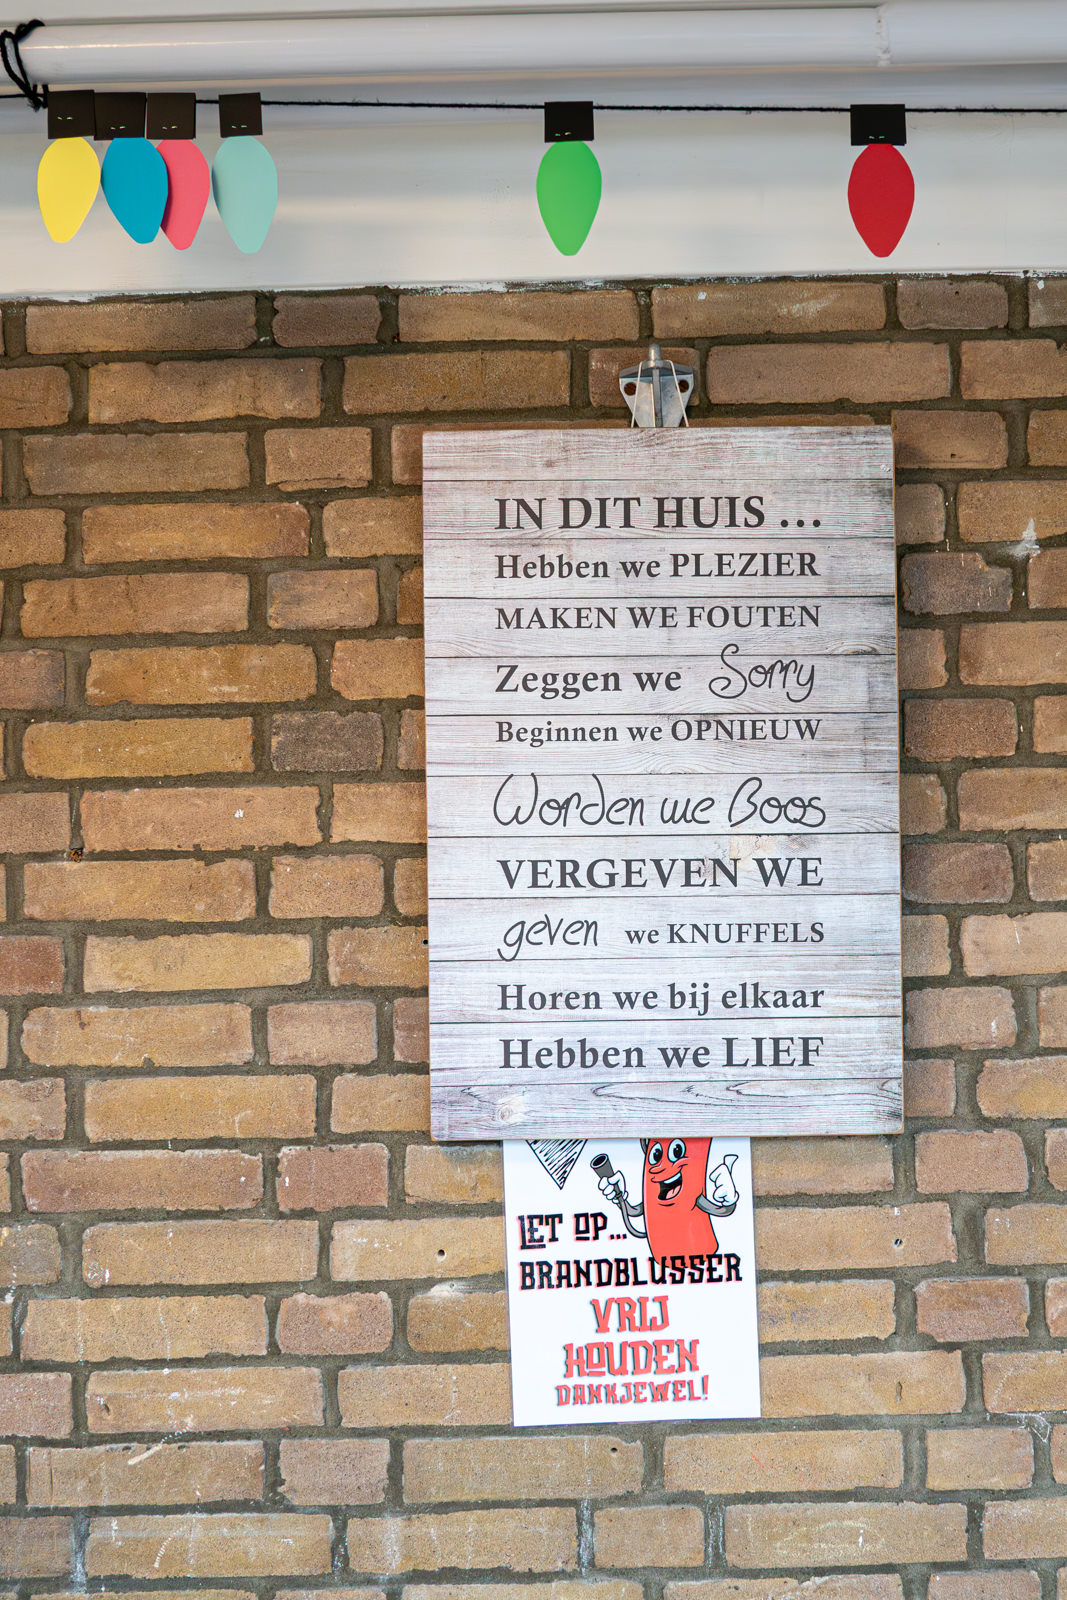 IN DIT HUIS ...
Hebben we PLEZIER
MAKEN WE FOUTEN
Zeggen we Sorry
Beginnen we OPNIEUW
Worden we Boos
VERGEVEN WE
geven we KNUFFELS
Horen we bij elkaar
Hebben we LIEF
LET OP...
BRANDBLUSSER
VRIJ
HOUDEN
DANKJEWEL!